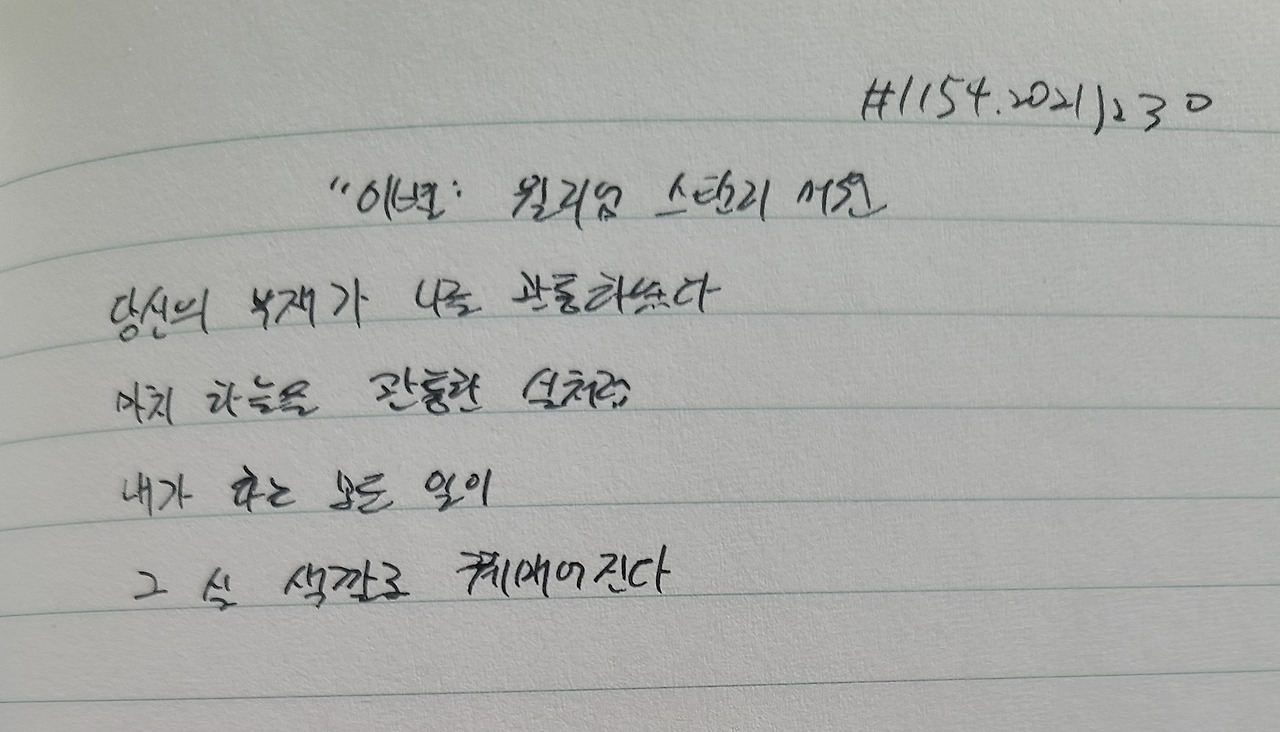 #1154.20211230
"이별: 윌리엄 스탠리 머윈
당신의 부재가 나를 관통하였다
마치 하늘을 관통한 실처럼
내가 하는 모든 일이
그 실 색깔로 꿰매어진다